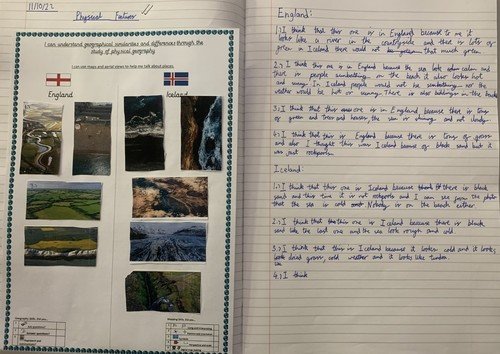 11/10/22
Physical Features
I can understand geographical similarities and differences through the
study of physical geography
I can use maps and aerial views to help me talk about places.
England
Iceland
Geography Skills: Did you...
England:
1.) I think that this one is in England because to me it
looks like a river in the countryside and that is lots of
green in Iceland there would not be that much green.
2.) I think this one is in England because the sea looks calm and
there is people sunbathing on the beach it also looks hot
and sunny In Iceland people would not be sunbathing nor the
weather would be hot or sunny. There is also in the back
3.) I think that this one is in England because there is tons
of green and trees and houses the sun is shining and not cloudy
4.) I think that this is England because there is tons of grass
and also I thought this was Iceland because of black sand but it
was just rockpools.
Iceland:
1.) I think that this one is Iceland because there is black
sand and this time it is not rockpools and I can see from the photo
that the sea is cold Nobody is on the beach either.
2.) I think that this one is Iceland because there is black
sand like the last one and the sea looks rough and cold
3.) I think that this is Iceland because it looks cold and it looks
look dried grass, cold weather and it looks like tundra
4.) I think